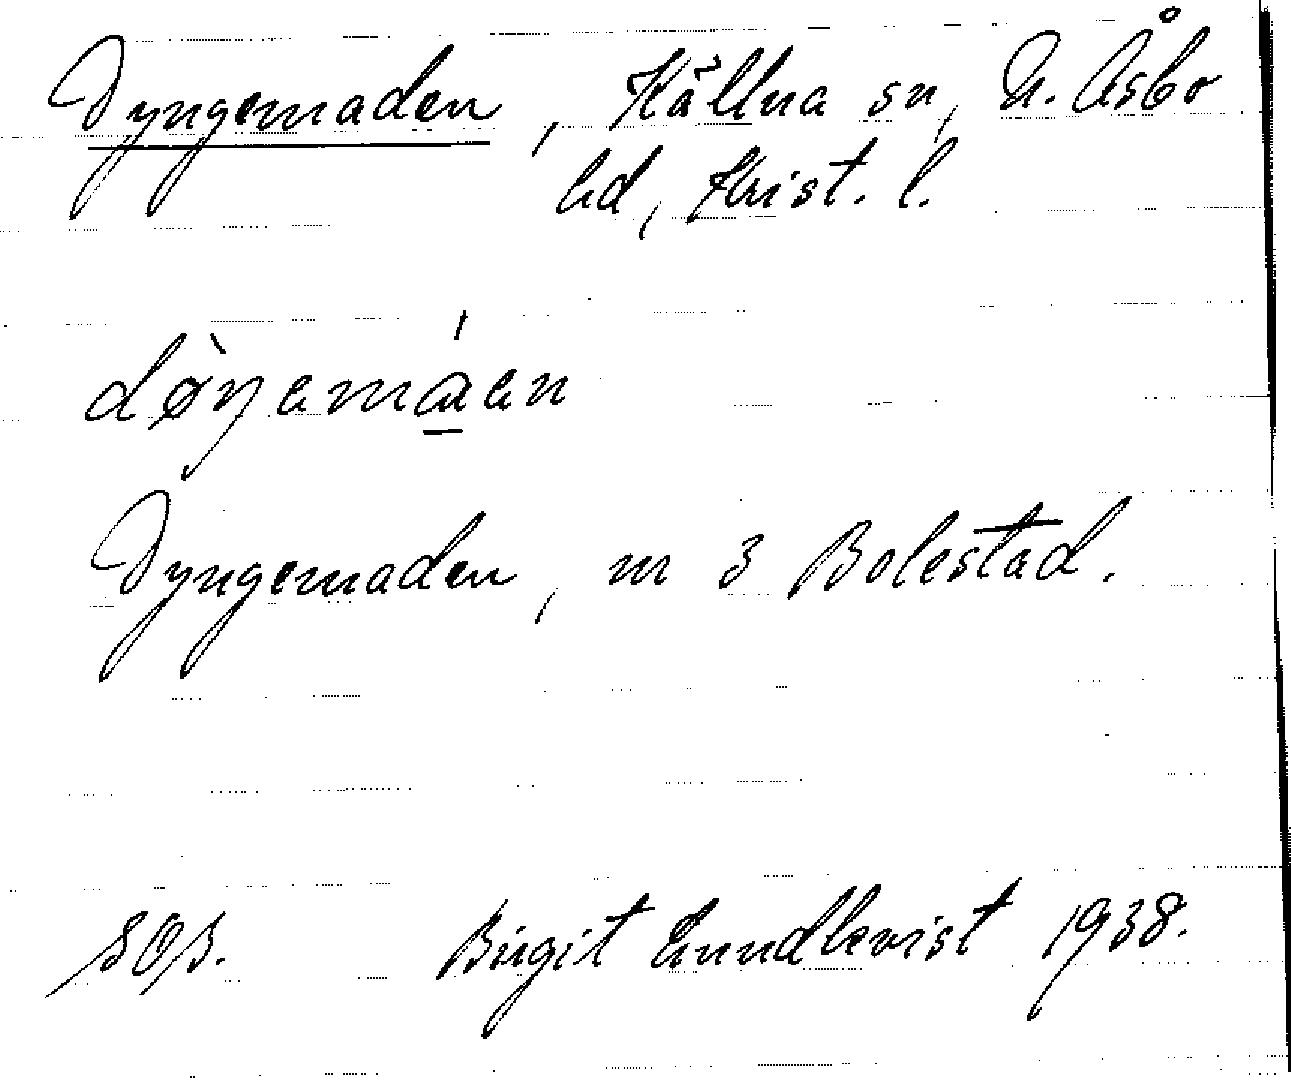 Dyngemaden, Källna sn, N. Åsbo
hd, Krist. l.
dø̀ŋemáen
Dyngemaden, nr 3 Bolestad.
SOS. Birgit Lundkvist 1938.